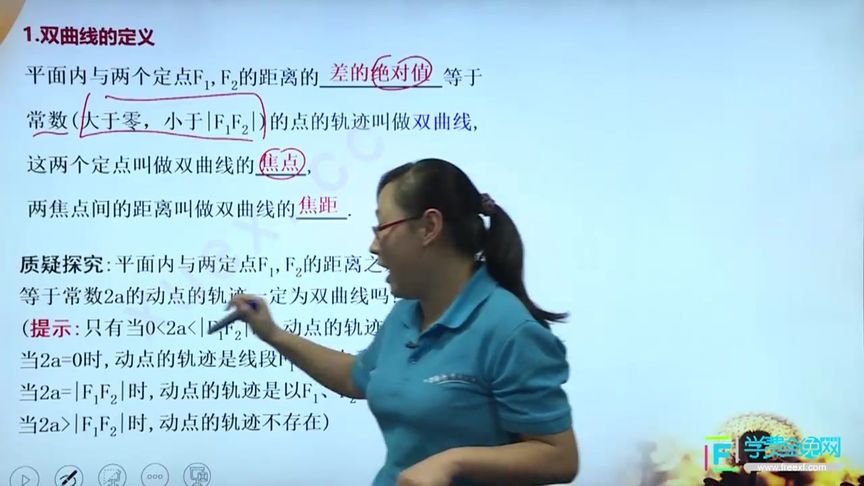 1.双曲线的定义
平面内与两个定点F₁,F₂的距离的 差的绝对值 等于
常数(大于零，小于|F₁F₂|)的点的轨迹叫做双曲线,
这两个定点叫做双曲线的 焦点,
两焦点间的距离叫做双曲线的 焦距.
质疑探究:平面内与两定点F₁,F₂的距离之
等于常数2a的动点的轨迹一定为双曲线吗?
(提示:只有当0<2a<|F₁F₂| 动点的轨迹
当2a=0时,动点的轨迹是线段F₁
当2a=|F₁F₂|时,动点的轨迹是以F₁、F₂
当2a>|F₁F₂|时,动点的轨迹不存在)
F 学费全免网
www.freexf.com